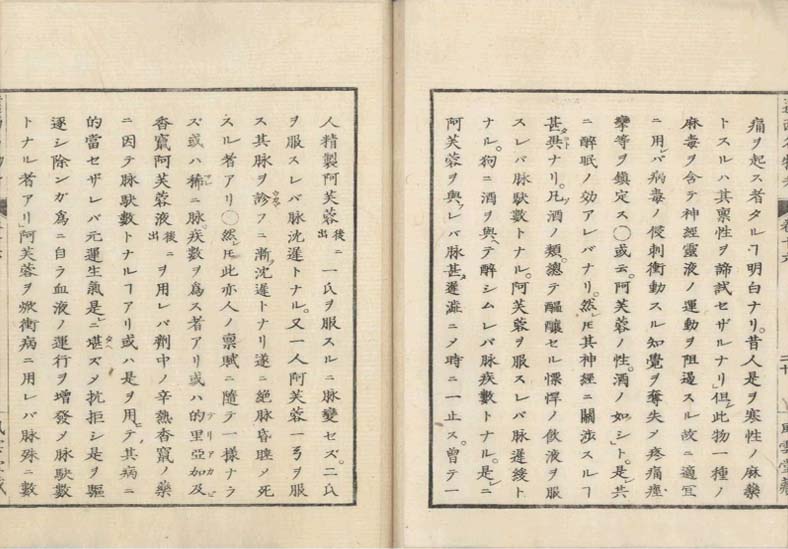 痛ヲ起ス者タルヿ明白ナリ。昔人是ヲ寒性ノ麻藥
トスルハ其稟性ヲ諦試セザルナリ」但シ此物一種ノ
麻毒ヲ含テ神經靈液ノ運動ヲ阻遏スル故ニ適宜
ニ用レバ病毒ノ侵刺衝動スル知覺ヲ奪失メ疼痛痙
攣等ヲ鎮定ス○或云。阿芙蓉ノ性。酒ノ如シト。是レ共
ニ醉眠ノ効アレバナリ。然ㇳモ其神經ニ關渉スルヿ
甚異ナリ。凡ソ酒ノ類。總テ醞釀セル慓悍ノ飲液ヲ服
スレバ脉駃數トナル。阿芙蓉ヲ服スレバ脉遲緩ト
ナル。狗ニ酒ヲ與ヘテ醉シムレバ脉疾數トナル。是レニ
阿芙蓉ヲ與フレバ脉甚遲澁ニメ時ニ一止ス。曾テ一
人精製阿芙蓉後ニ出一氏ヲ服スルニ脉變セズ。二氏
ヲ服スレバ脉沈遲トナル。又一人阿芙蓉一ヲ服
ス其脉ヲ診フニ漸ク沈遲トナリ遂ニ絶脉昏睡メ死
スル者アリ○然ㇳモ此亦人ノ稟賦ニ隨テ一樣ナラ
ズ或ハ稀ニ脉疾數ヲ爲ス者アリ或ハ的里亞加及
香竄阿芙蓉液後ニ出ヲ用レバ劑中ノ辛熱香竄ノ藥
ニ因テ脉駃數トナルヿアリ或ハ是ヲ用テ其病ニ
的當セザレバ元運生氣是レニ堪ズメ抗拒シ是ヲ驅
逐シ除ンガ爲ニ自ラ血液ノ運行ヲ增發メ脉駃數
トナル者アリ」阿芙蓉ヲ焮衝病ニ用レバ脉殊ニ數